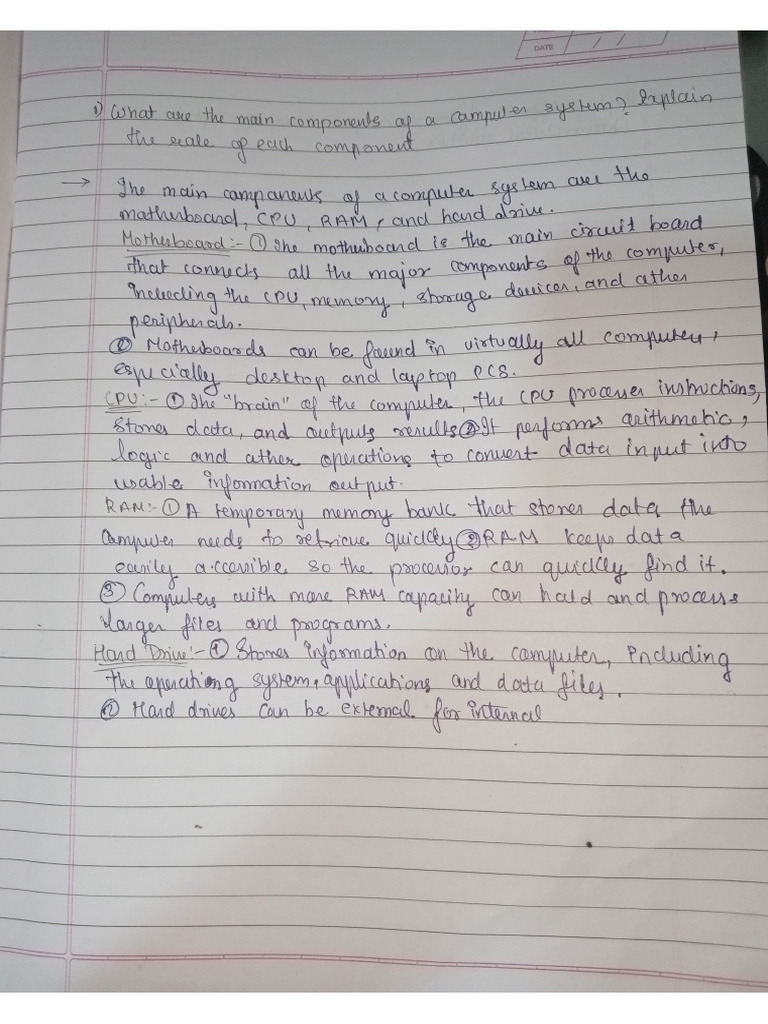 DATE / /
1) What are the main components of a computer system? Explain
the role of each component
→ The main components of a computer system are the
motherboard, CPU, RAM, and hard drive.
Motherboard:- ① The motherboard is the main circuit board
that connects all the major components of the computer,
including the CPU, memory, storage devices, and other
peripherals.
② Motherboards can be found in virtually all computers,
especially desktop and laptop PCS.
CPU:- ① The "brain" of the computer, the CPU processes instructions,
stores data, and outputs results ② It performs arithmetic,
logic and other operations to convert data input into
usable information output.
RAM:- ① A temporary memory bank that stores data the
computer needs to retrieve quickly ② RAM keeps data
easily accessible so the processor can quickly find it.
③ Computers with more RAM capacity can hold and process
larger files and programs.
Hard Drive:- ① Stores information on the computer, including
the operating system, applications and data files.
② Hard drives can be external for internal